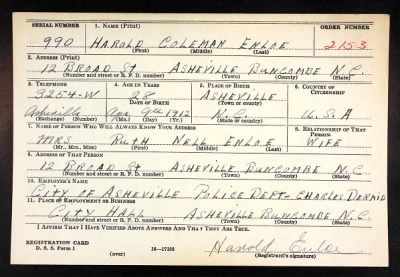 SERIAL NUMBER 1. NAME (Print) ORDER NUMBER
990 HAROLD COLEMAN ENLOE 2153
(First) (Middle) (Last)
2. ADDRESS (Print)
12 BROAD ST ASHEVILLE BUNCOMBE N.C.
(Number and street or R. F. D. number) (Town) (County) (State)
3. TELEPHONE 4. AGE IN YEARS 5. PLACE OF BIRTH 6. COUNTRY OF CITIZENSHIP
3254-W 28 ASHEVILLE
DATE OF BIRTH (Town or county)
Asheville Apr. 1912 N.C. U.S.A
(Exchange) (Number) (Mo.) (Day) (Yr.) (State or country)
7. NAME OF PERSON WHO WILL ALWAYS KNOW YOUR ADDRESS 8. RELATIONSHIP OF THAT PERSON
MRS RUTH NELL ENLOE WIFE
(Mr., Mrs., Miss) (First) (Middle) (Last)
9. ADDRESS OF THAT PERSON
12 BROAD ST ASHEVILLE BUNCOMBE N.C
(Number and street or R. F. D. number) (Town) (County) (State)
10. EMPLOYER'S NAME
CITY OF ASHEVILLE POLICE DEPT- CHARLES DERMID
11. PLACE OF EMPLOYMENT OR BUSINESS
CITY HALL ASHEVILLE BUNCOMBE N.C.
(Number and street or R. F. D. number) (Town) (County) (State)
I AFFIRM THAT I HAVE VERIFIED ABOVE ANSWERS AND THAT THEY ARE TRUE.
REGISTRATION CARD
D. S. S. Form 1 (over) 16-17105 Harold Enloe
(Registrant's signature)